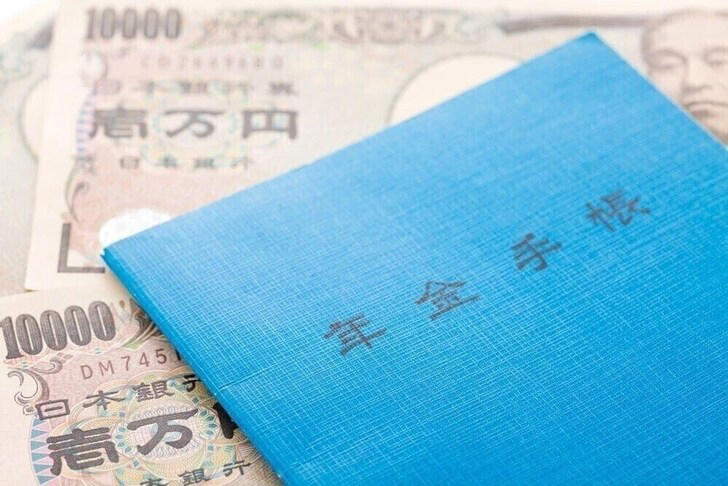 10000
日本銀行券
壱万円
日本銀行
年金手帳
10000
DM745
日本銀行
壱万
日本銀行